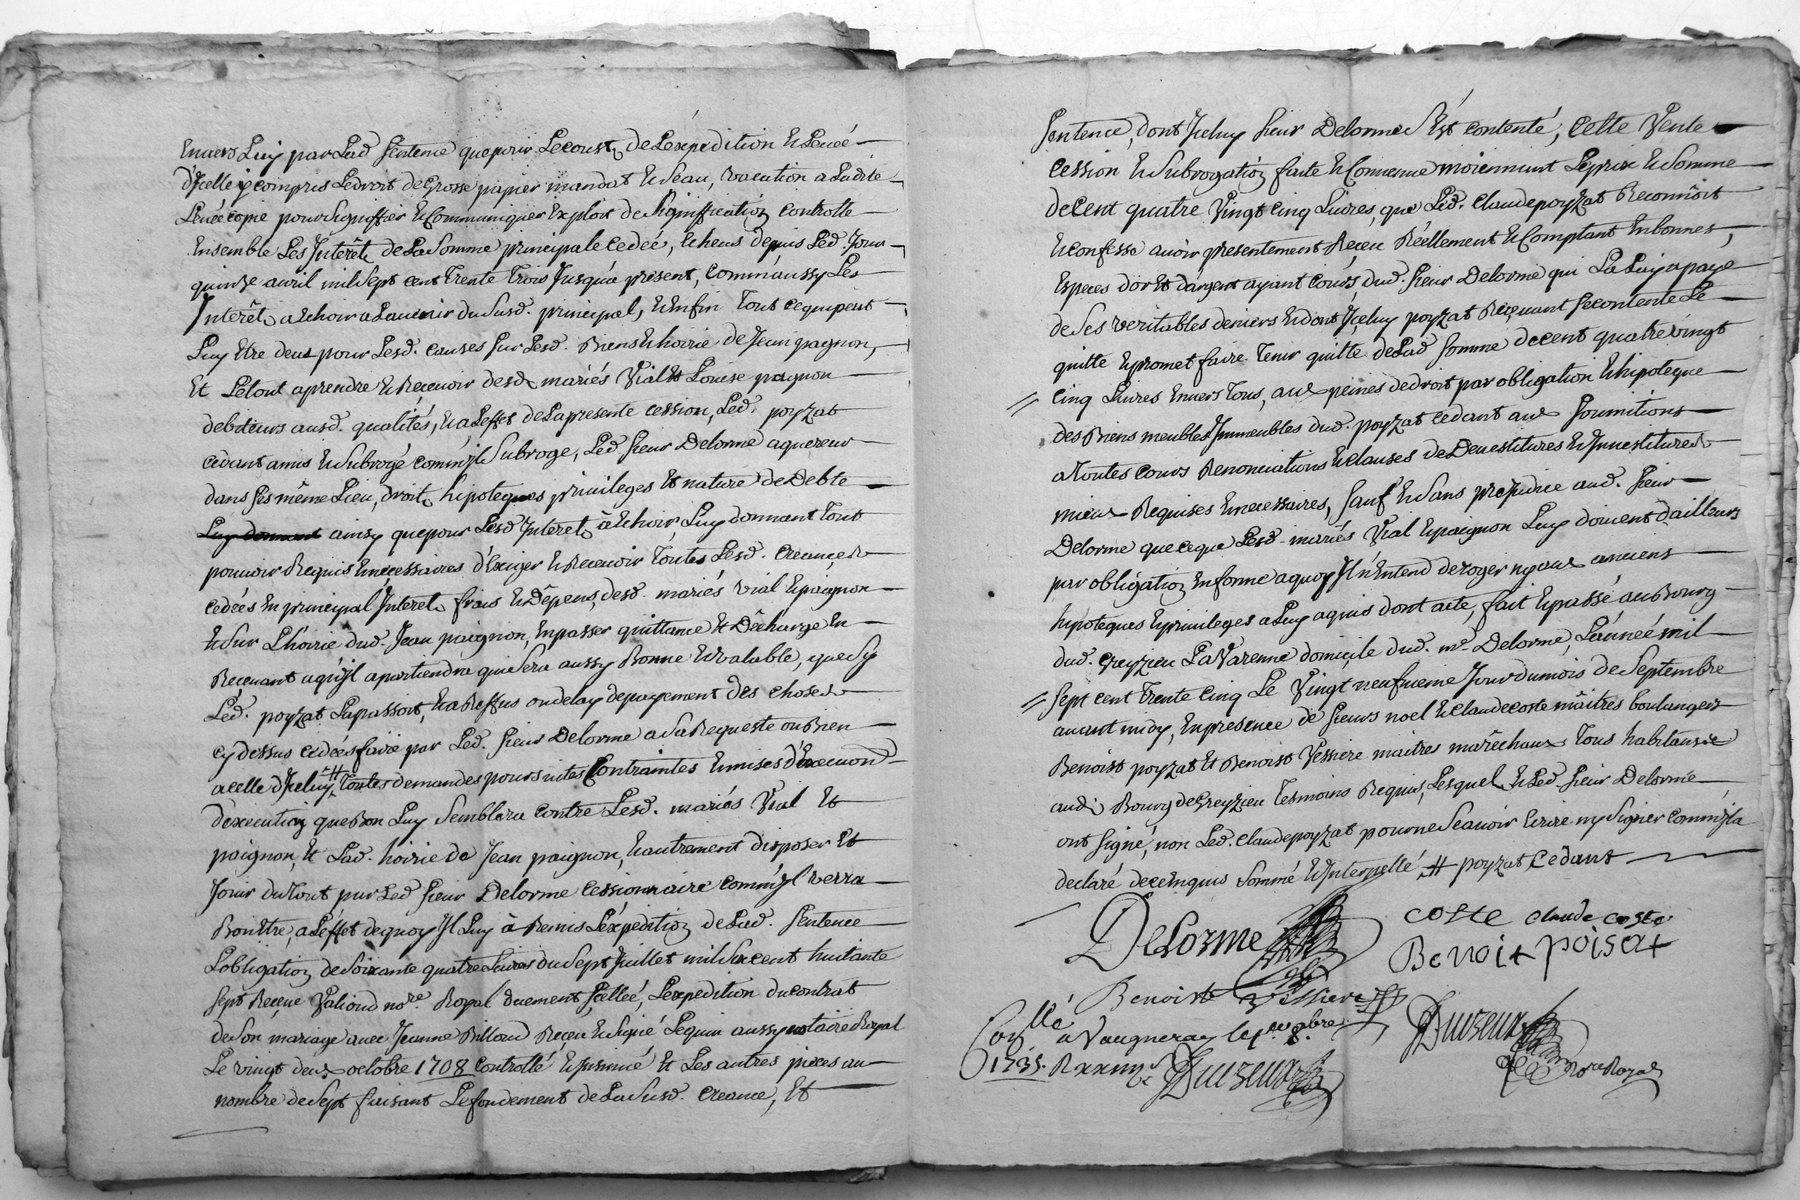 Envers Luy par Lad Sentence que pour Le coust, de L'expedition & Levée
d'Jcelle y compris Le droit de Grosse papier mandat & Seau, vacation a Ladite
Levée copie pour Signiffier & Communiquer Exploit de Signiffication Controlle
Ensemble Les Jnterêts de La Somme principale cedeé, Echeus depuis Led. Jour
quinze avril mil Sept cent Trente Trois Jusqu'a present, comm'aussy Les
Jnterêts a Echoir a L'avenir du Susd. principal, & Enfin Tout ce qui peut
Luy Etre deus pour Lesd. causes Sur Lesd. Biens & hoirie de Jean pagnon,
Et Le tout a prendre & Recevoir desd. mariés Vial & Louise pagnon
debiteurs ausd. qualités, & a L'effet de La presente cession, Led. poyzat
cedant a mis & Subrogé comm'jl Subroge, Led. Sieur Delorme aquereur
dans Ses même Lieu, droits hipoteques privileges Et nature de Debte
Luy donnant ainsy que pour Lesd. Jnterets à Echoir, Luy donnant Tout
pouvoir Requis & necessaires d'Exiger & Recevoir Toutes Lesd. Creances
cedées En principal Jnterets frais & Dêpens, desd. mariés Vial & paignon
& Sur L'hoirie dud. Jean paignon, En passer quittance Et Dêcharge En
Recevant a qu'jl apartiendra qui Sera aussy Bonne & valable, que Sy
Led. poyzat La passoit, & a Reffus ou delay de payement des choses
cy dessus cedées faire par Led. Sieur Delorme a Sa Requeste ou Bien
a celle d'Jceluy # Toutes demandes poursuites Contraintes & mises d'Execuon
d'execution que Bon Luy Semblera contre Lesd. mariés Vial Et
paignon, Et Lad. hoirie de Jean paignon, & autrement disposer Et
Jouir du Tout par Led Sieur Delorme cessionnaire comm'jl verra
Bon Etre, a L'effet de quoy Jl Luy à Remis L'expedition de Lad. Sentence
L'obligation de Soixante quatre Livres du Sept Juillet mil Six cent huitante
Sept Receue Valioud nore. Royal duement Scelleé, L'expedition du contrat
de Son mariage avec Jeanne Billoud Receu & Signé Lequin aussy notaire Royal
Le vingt deux octobre 1708 Controllé & Jnsinué Et Les autres pieces au
nombre de Sept faisant Le fondement de La Susd. creance, Et
Sentence, dont Jceluy Sieur Delorme S'Est contenté, Cette Vente
Cession & Subrogation faite & Convenue moiennant Le prix & Somme
de Cent quatre Vingt Cinq Livres, que Led. Claude poyzat Reconnoit
& confesse avoir presentement Receu Réellement & Comptant En bonnes,
Especes d'or Et d'argent ayant cours dud. Sieur Delorme qui La Luy a paye
de Ses veritables deniers & dont Jceluy poyzat Recevant Se contente Le
quitte & promet faire Tenir quitte de Lad Somme de cent quatre vingt
Cinq Livres Envers Tous, aux peines de droit par obligation & hipoteque
des Biens meubles Jmmeubles dud. poyzat cedant aux Soumitions
a Toutes cours Renonciations & clauses de Devestitures & Jnvestitures
mieux Requises & necessaires, Sauf & Sans prejudice aud. Sieur
Delorme que ce que Lesd. mariés Vial & paignon Luy doivent d'ailleurs
par obligation En forme a quoy Jl n'Entend deroger ny aux anciens
hipoteques & privileges a Luy aquis dont acte, fait & passé au Bourg
dud. Greyzieu La Varenne domicile dud. mr. Delorme, L'année mil
Sept cent Trente Cinq Le Vingt neufvieme Jour du mois de Septembre
avant midy, En presence de Sieurs noel & Claude coste maîtres boulangers
Benoist poyzat Et Benoist Vessiere maitres marêchaux Tous habitans
aud. Bourg de Greyzieu Tesmoins Requis, Lesquels & Led Sieur Delorme
ont Signé, non Led. Claude poyzat pour ne Scavoir Ecrire ny Signer comm'jl a
declaré de ce Enquis Sommé & Jnterpellé # poyzat Cedant
Delorme coste claude coste
Benoit poisat
Benoiste
Conllé à Vaugneray le 8bre.
1735.
nore Royal